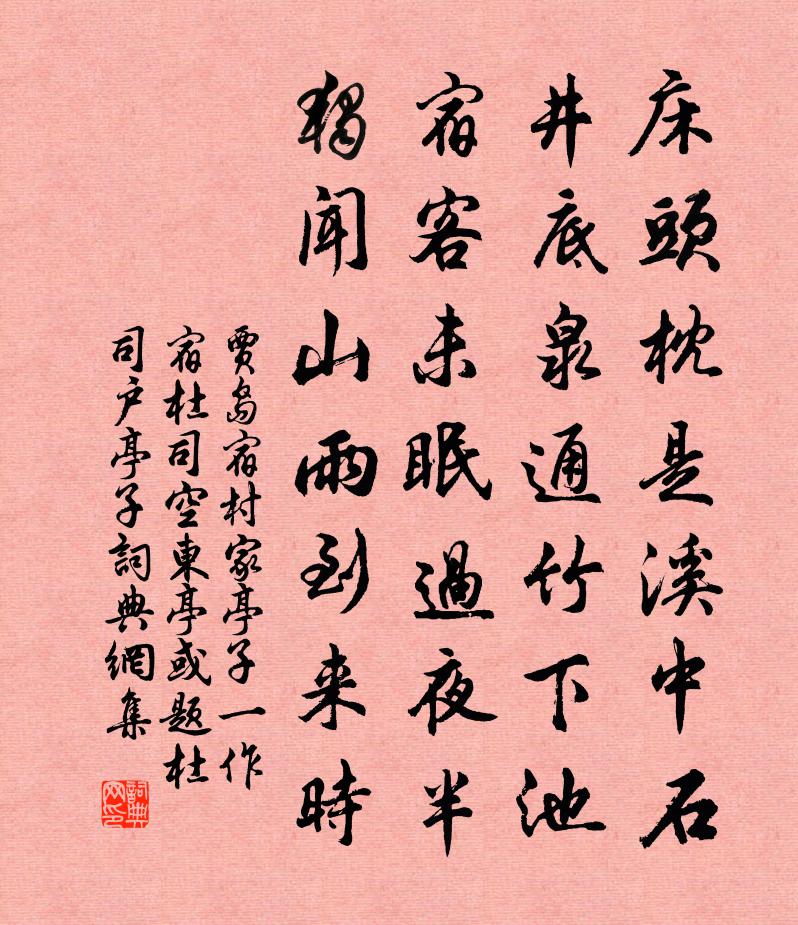 床頭枕是溪中石
井底泉通竹下池
宿客未眠過夜半
獨聞山雨到来時
賈島宿村家亭子一作
宿杜司空東亭或題杜
司户亭子詞典網集
詞典
网印